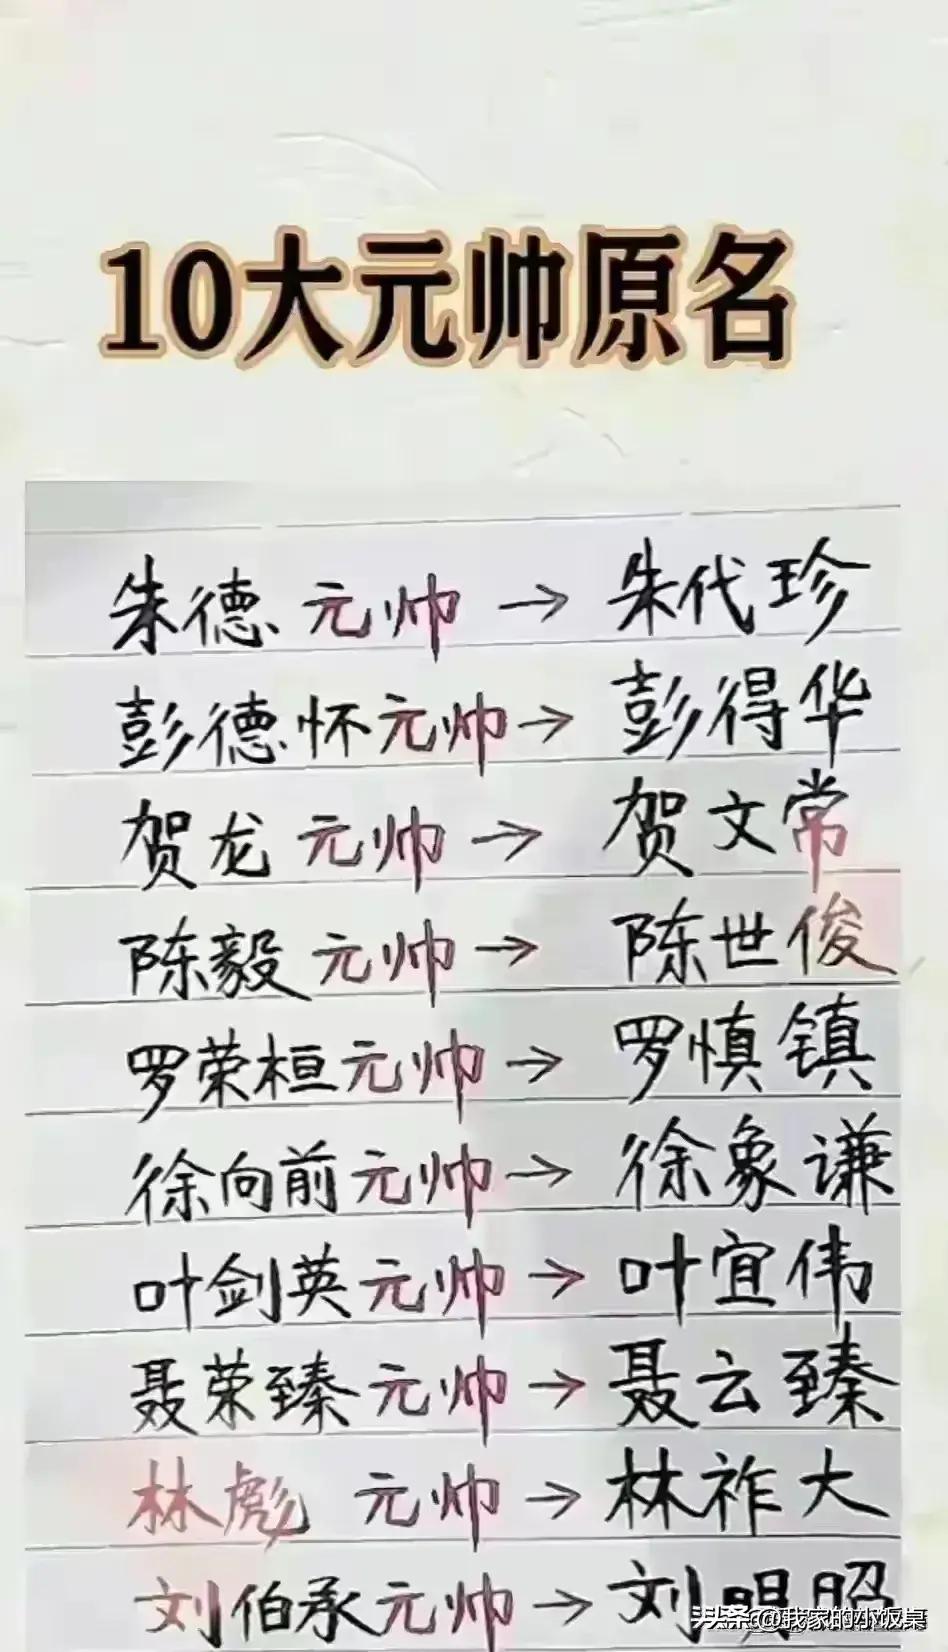 10大元帅原名
朱德元帅→朱代珍
彭德怀元帅→彭得华
贺龙元帅→贺文常
陈毅元帅→陈世俊
罗荣桓元帅→罗慎镇
徐向前元帅→徐象谦
叶剑英元帅→叶宜伟
聂荣臻元帅→聂云臻
林彪元帅→林祚大
刘伯承元帅→刘明昭
头条@我家的小饭桌